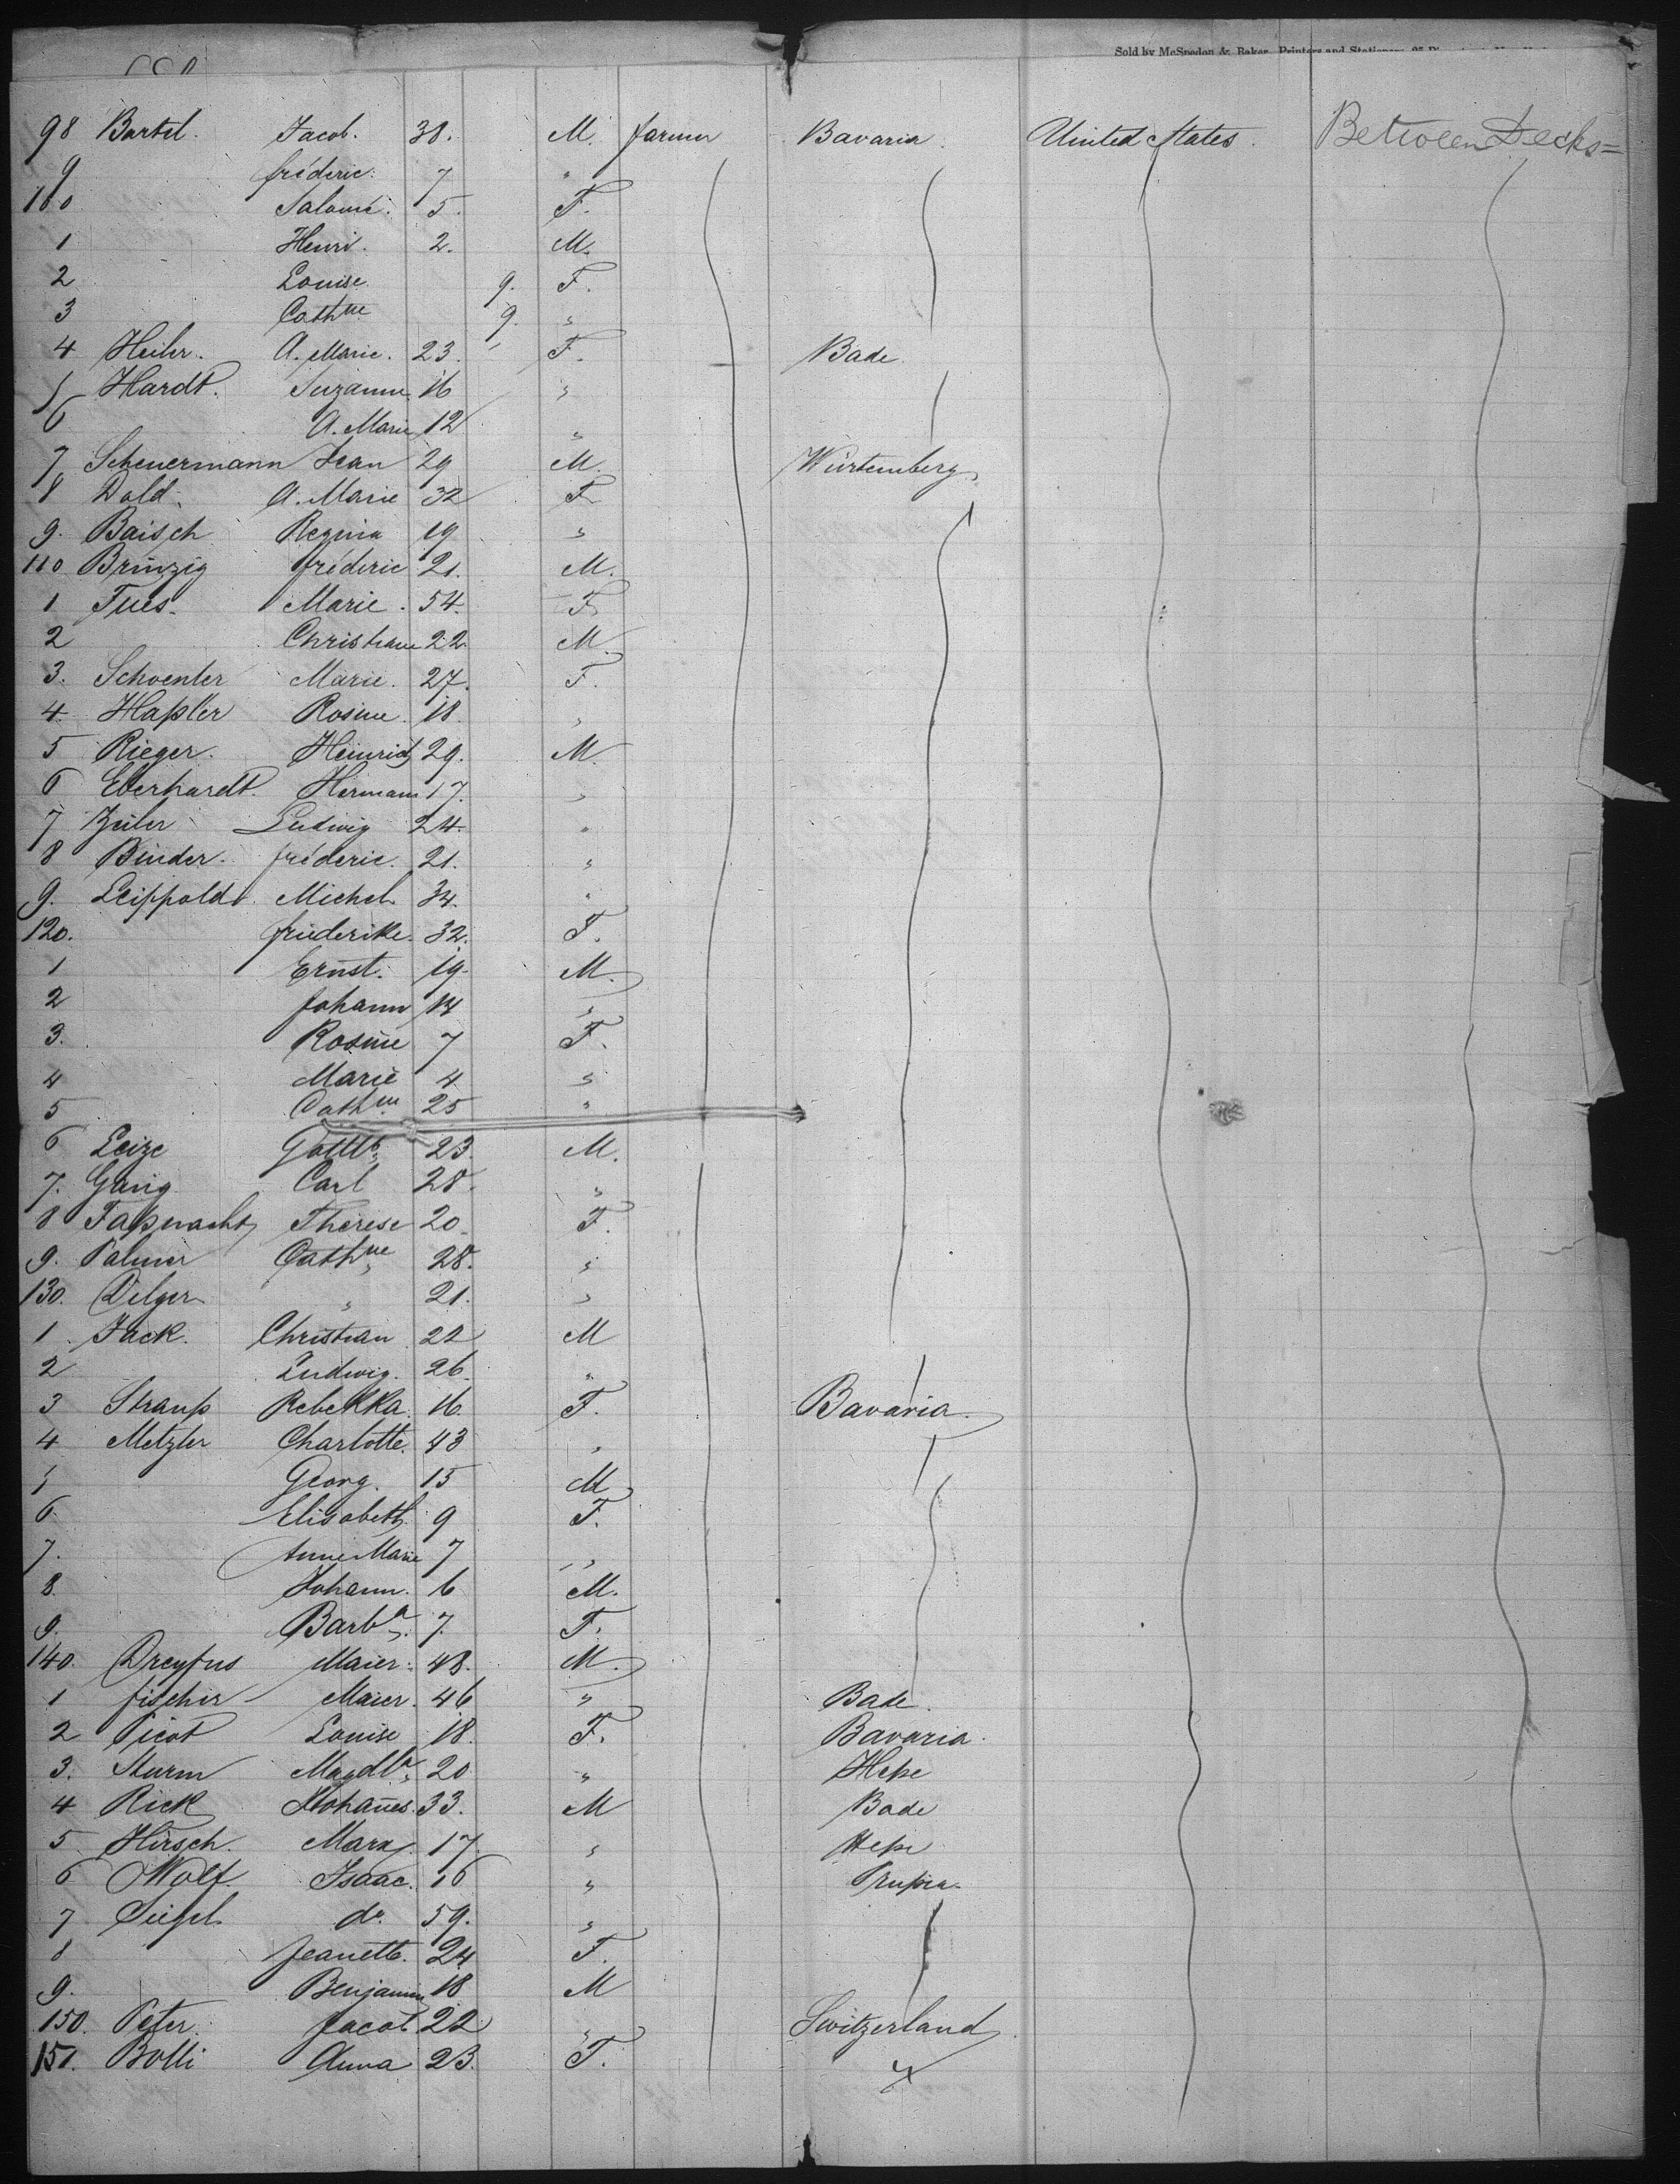 Sold by McSpedon & Baker, Printers and Stationers, 25
98 Bartel. Jacob. 38. M. farmer Bavaria. United States. Between Decks =
9 fréderic. 7 "
100 Salomé. 5. F.
1 Henri. 2. M.
2 Louise 9. F.
3 Cathne 9. "
4 Heiler. A. Marie. 23. F. Bade.
5 Hardt. Suzanne. 16 "
6 A. Marie 12 "
7 Scheuermann Jean 29 M. Würtemberg
8 Dold. A. Marie 32 F
9. Baisch Regina 19 "
110 Brinzig fréderic 21. M.
1 Fues. Marie. 54. F.
2 Christiane 22 M.
3. Schoenler Marie. 27. F.
4. Haßler Rosine. 18. "
5 Rieger. Heinrich 29. M.
6 Eberhardt. Hermann 17. "
7 Zeiler Ludwig 24. "
8 Binder. fréderic. 21. "
9. Leippold. Michel 34. "
120. friederike. 32. F.
1 Ernst. 19. M.
2 Johann 14 "
3. Rosine 7 F.
4 Marie 4 "
5 Cathne 25 "
6 Leize Gottlb 23. M.
7. Carl 28. "
8 Faßnacht Therese 20 F.
9. Palmer Cathne 28. "
130. Delger " 21. "
1. Jack. Christian 22 M
2 Ludwig. 26. "
3 Strauß Rebekka. 16. F. Bavaria.
4 Metzler Charlotte. 43 "
5 Georg. 15 M
6. Elisabeth 9 F.
7. Anne Marie 7 "
8. Johann. 6 M.
9. Barba. 7. F.
140. Dreyfus Maier. 48. M.
1 fischer Maier. 46 " Bade.
2 Picot Louise 18. F. Bavaria.
3. Sturm Magdla 20 " Heße
4 Rick Johañes. 33. M Bade
5 Hirsch. Marx. 17. " Heße
6 Wolf. Isaac. 16 " Prußia.
7 do. 59. "
8 Jeanette. 24 F.
9. Benjamin 18 M
150. Peter. Jacob 22 " Switzerland.
151. Bolli Anna 23. F. "